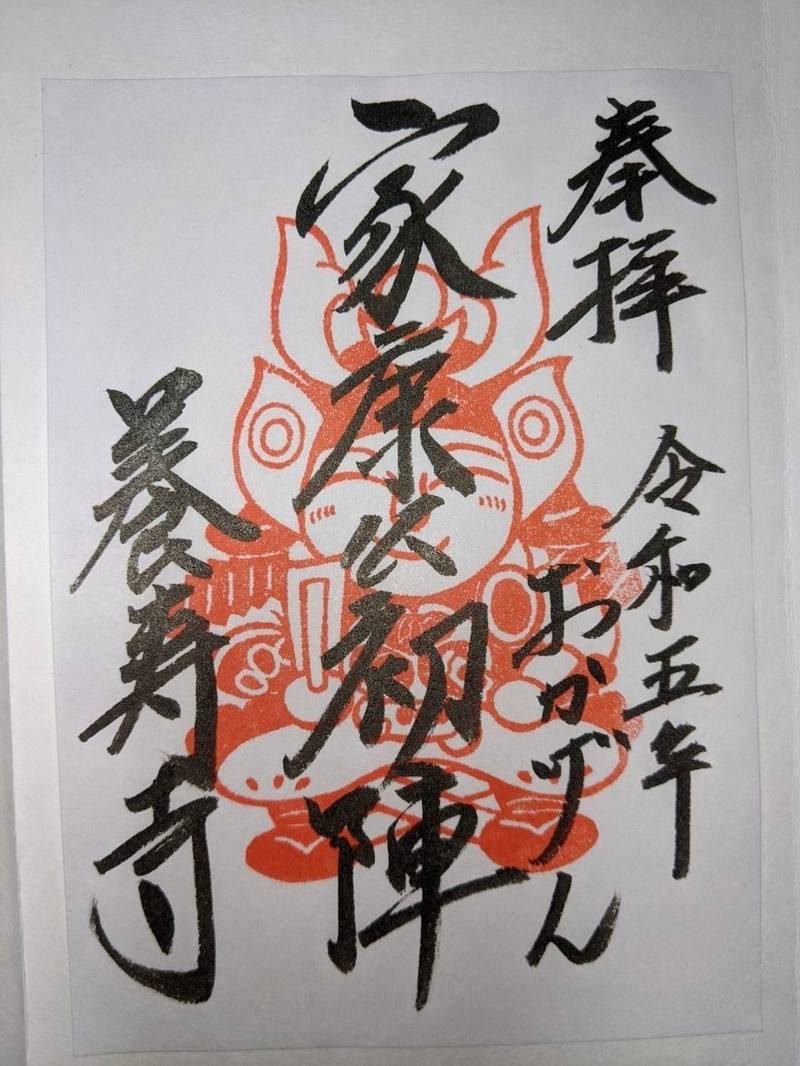 奉拝 令和五年
おかげん
家康公初陣
養寿寺